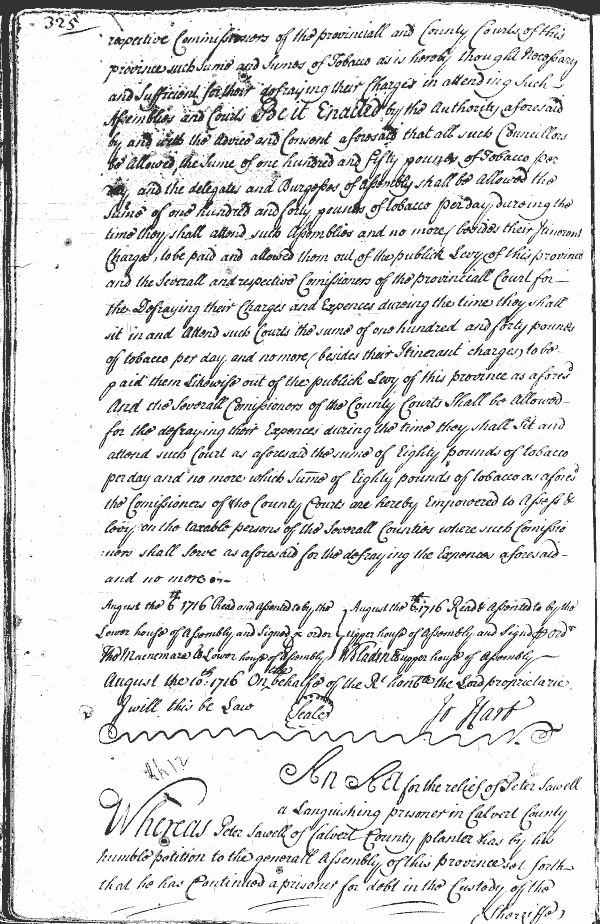 325
respective Comissioners of the provinciall and County Courts of this
province such sume and sumes of Tobaco as is hereby thought Necessary
and Sufficient for their defraying their Charges in attending Such
Assemblies and Courts Be it Enacted by the Authority aforesaid
by and with the Advice and Consent aforesaid that all such Councillors
be Allowed the Sume of one hundred and fifty pounds of Tobacco per
day and the delegates and Burgesses of Assembly shall be Allowed the
Sume of one hundred and forty pounds of tobacco per day dureing the
time they shall attend such Assemblies and no more (besides their Itinerant
Charges) to be paid and allowed them out of the publick Levy of this province
and the severall and respective Comissioners of the provinciall Court for
the Defraying their Charges and Expences dureing the time they shall
sit in and Attend such Courts the sume of one hundred and forty pounds
of tobacco per day and no more (besides their Itinerant charges) to be
paid them Likewise out of the publick Levy of this province as aforesd
And the Severall Comissioners of the County Courts Shall be Allowed
for the defraying their Expences during the time they shall Sit and
attend such Court as aforesaid the sume of Eighty pounds of tobacco
per day and no more which Sume of Eighty pounds of tobacco as aforesd
the Comissioners of the County Courts are hereby Empowered to Assess &
levy on the taxable persons of the Severall Counties where such Comissio
ners shall serve as aforesaid for the defraying the Expences aforesaid
and no more
August the 6th 1716 Read and Assented to by the
Lower house of Assembly and Signed p order
Tho Macnemara Cl Lower house of Assembly
August the 6th 1716 Read & Assented to by the
upper house of Assembly and Signd p ordr
W Bladen Cl upper house of Assembly
August the 10th 1716 On the behalfe of the Rt honble the Lord proprietarie
I will this be Law
Seale
Jo Hart
An Act for the relief of Peter Sewell
a Languishing prisoner in Calvert County
Whereas Peter Sewell of Calvert County planter has by his
humble petition to the generall Assembly of this Province set forth
that he has Continued a prisoner for debt in the Custody of the
Sherriffe